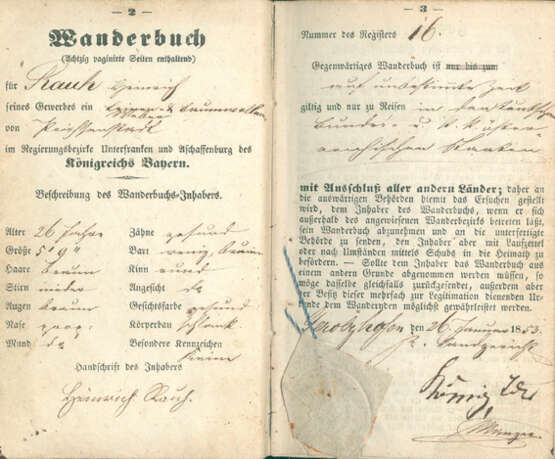 — 2 —
Wanderbuch
(Achtzig paginirte Seiten enthaltend)
für Rauh Heinrich
seines Gewerbes ein Leinen- & Baumwollen
Weber
von Prichsenstadt
im Regierungsbezirke Unterfranken und Aschaffenburg des
Königreichs Bayern.
Beschreibung des Wanderbuchs-Inhabers.
Alter 26 Jahre Zähne gesund
Größe 5' 9" Bart wenig, braun
Haare braun Kinn rund
Stirn nieder Angesicht do
Augen braun Gesichtsfarbe gesund
Nase groß Körperbau schlank
Mund do Besondere Kennzeichen
keine
Handschrift des Inhabers
Heinrich Rauh.
— 3 —
Nummer des Registers 16.
Gegenwärtiges Wanderbuch ist nur bis zum
auf unbestimmte Zeit
giltig und nur zu Reisen in den deutschen
Bundes- u. k. k. öster-
reichischen Staaten
mit Ausschluß aller andern Länder; daher an
die auswärtigen Behörden hiemit das Ersuchen gestellt
wird, dem Inhaber des Wanderbuchs, wenn er sich
außerhalb des angewiesenen Wanderbezirks betreten läßt,
sein Wanderbuch abzunehmen und an die unterfertigte
Behörde zu senden, den Inhaber aber mit Laufzettel
oder nach Umständen mittels Schubs in die Heimath zu
befördern. — Sollte dem Inhaber das Wanderbuch aus
einem andern Grunde abgenommen werden müssen, so
wöge dasselbe gleichfalls zurückgesendet, außerdem aber
der Besitz dieser mehrfach zur Legitimation dienenden Ur-
kunde dem Wandernden möglichst gewährleistet werden.
Gerolzhofen den 26 Januar 1853.
K. Landgericht
König